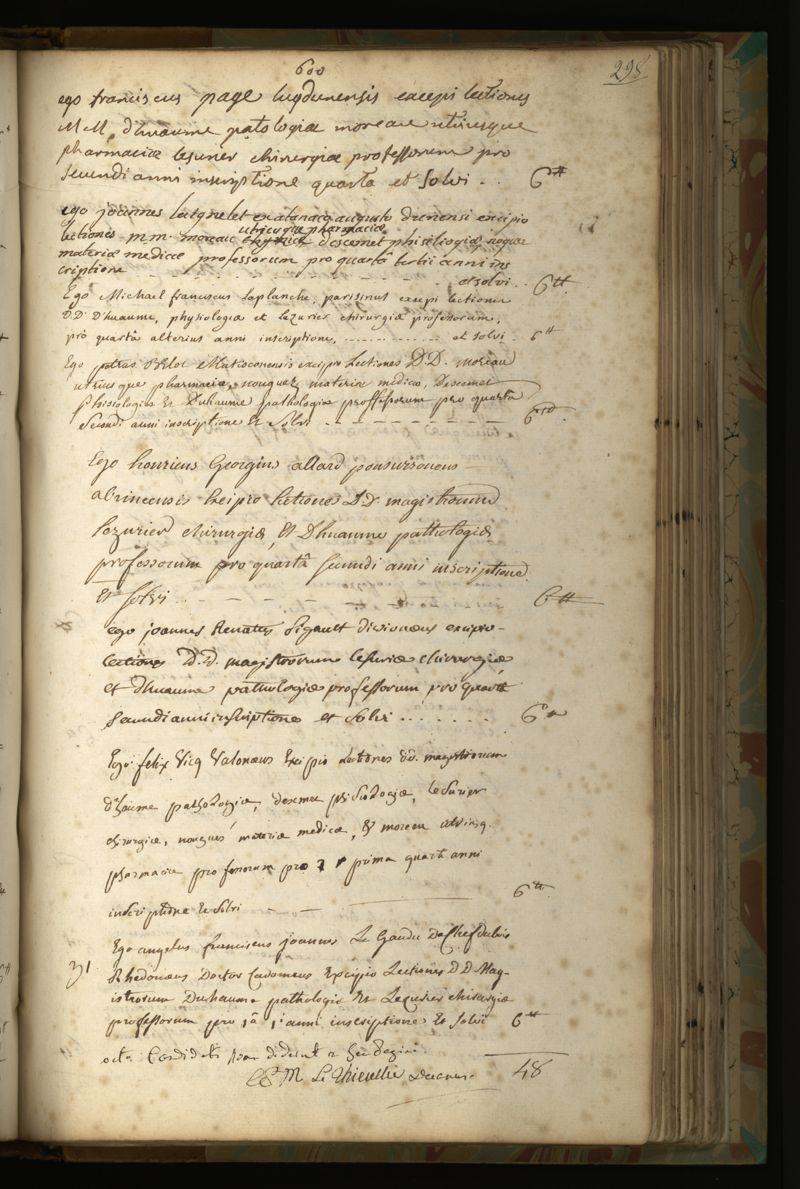 600
298
ego franciscus page lugdunensis excepi lectiones
M M. d'huaume patologiæ moreau utriusque
pharmaciæ lesurier chirurgiæ professorum pro
secundi anni inscriptione quarta et solvi . . 6 tt
ego joannes laignelet excipio
utriusque pharmaciæ
lectiones m m. moreau descemet phisiologiæ
materiæ medicæ professorum pro quartâ tertii anni ins
criptione et solvi . . 6 tt
Ego Michael franciscus Laplanche, parisinus excepi lectiones
D.D. Dhuaume, physiologiæ et Lezurier chirurgiæ professorum,
pro quartâ alterius anni inscriptione, . . . . . . . . et solvi . 6 tt
Ego petrus excipio Lectiones D.D. moreau
utriusque pharmaciæ, nouguez materiæ medicæ, Descemet
phisiologiæ Et Duhaume pathologiæ professorum pro quarta
Secundi anni inscriptione Et Solvi - - - - - - - - 6 tt
Ego henricus Georgius allard
abrincensis Excipio lectiones D.D. magistrorum
Lezurier chirurgiæ, Et D'huaume pathologiæ
professorum pro quartâ secundi anni inscriptione
Et solvi . . - - - - - 6 tt
ego joannes Renatus Sigault divionæus excipio
Lectiones D.D. magistrorum lesurier chirurgiæ
et d'huaume pathologiæ professorum pro quartâ
secundi anni inscriptione et solvi . . . . . . . 6 tt
Ego felix Vicq Valonæus Excipio Lectiones dd. magistrorum
d'huaume pathologiæ, descemet phisiologiæ, lesurier
chirurgiæ, nougues materiæ medicæ, & moreau utriusq.
pharmaciæ professorum pro prima quarti anni
inscriptione Et solvi - - 6 tt
Ego angelus franciscus joannes Le Gaudu
Rhedonæus Doctor Cadomeus Excipio Lectiones D D Mag-
istrorum Duhaume pathologiæ Et Lezurier chirurgiæ
professorum pro 1â 1i anni inscriptione Et solvi 6 tt
octo Candidati
M Le Thieullier Decanus. 48